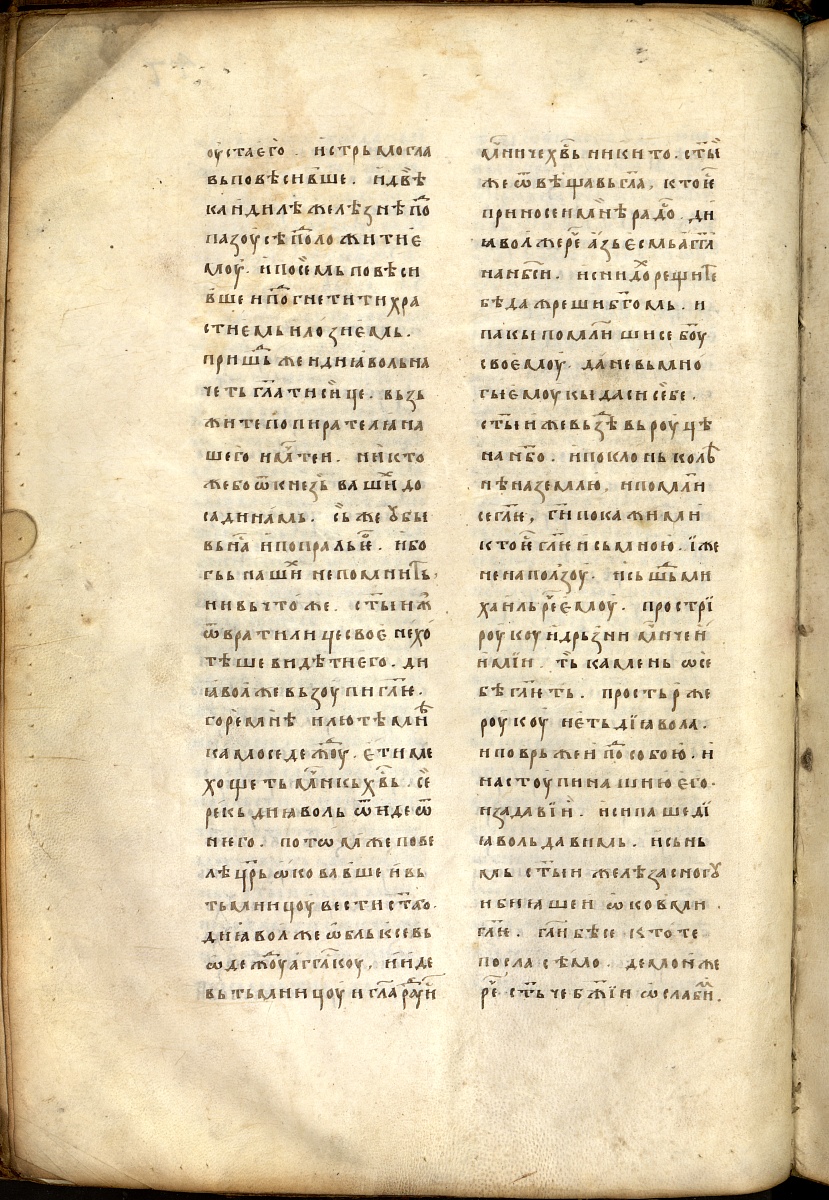 оустаего . истрьмогла
вьповѣсивше . идвѣ
кандилѣжелѣзнѣпо
пазоусѣположитиѥ
моу . ипосемьповѣси
вшеипогнетитихра
стиемьилозиемь .
пришьжеидиꙗвольна
четьглатисице . вьзь
житепопирателꙗна
шего имтеи . никто
жебоѿкнезь вашидо
садинамь . сьжеꙋбы
вьна ипопральѥ . ибо
гьь наши непомнить
нивьчтоже . стыиж
ѿвратилицесвоѥ нехо
тѣшевидѣтиѥго . ди
ꙗволжевьзоупиглю .
горемнѣ илютѣми
камоседемоу . ѥтиме
хощеть мникьхвь . се
рекьдиꙗволь ѿидеѿ
него . потѡмжепове
лѣцрьѡковавшеивь
тьмницоувестистаго .
диꙗволжеѡблькьсевь
ѡдеждоуагглскоу , ииде
вьтьмницоуигларауи
мничехвьникито . сты
жеѿвѣщавьгла , ктоѥ
приносеимнѣрадо . ди
ꙗволжере азьѥсмьагглъ
нанбси . иснидорещите
бѣдажрешибгомь . и
пакыпомлишисебоу
своѥмоу . даневьмно
гыѥмоукыдасисебе .
стыижевьзѣвьроуцѣ
нанбо . ипоклоньколѣ
нѣназемлю , ипомли
сеглю , гипокажими
ктоѥглѥисьмною . їже
ненаползоу . исьшьми
хаильреѥмоу . простри
роукоуидрьзнимничеи
имїи . тькаменьѡсе
бѣглѥть . простьрже
роукоу ѥтьдїꙗвола .
иповрьжеипособою . и
настоупинашиюего .
изадави . исипашедї
ꙗвольдавимь . исьнь
мь стыижелѣзасногꙋ
ибиꙗшеи ѡковми .
глѥ . глибѣсе ктоте
посласѣмо . демониже
ре стьчебжїи ѡслаби .